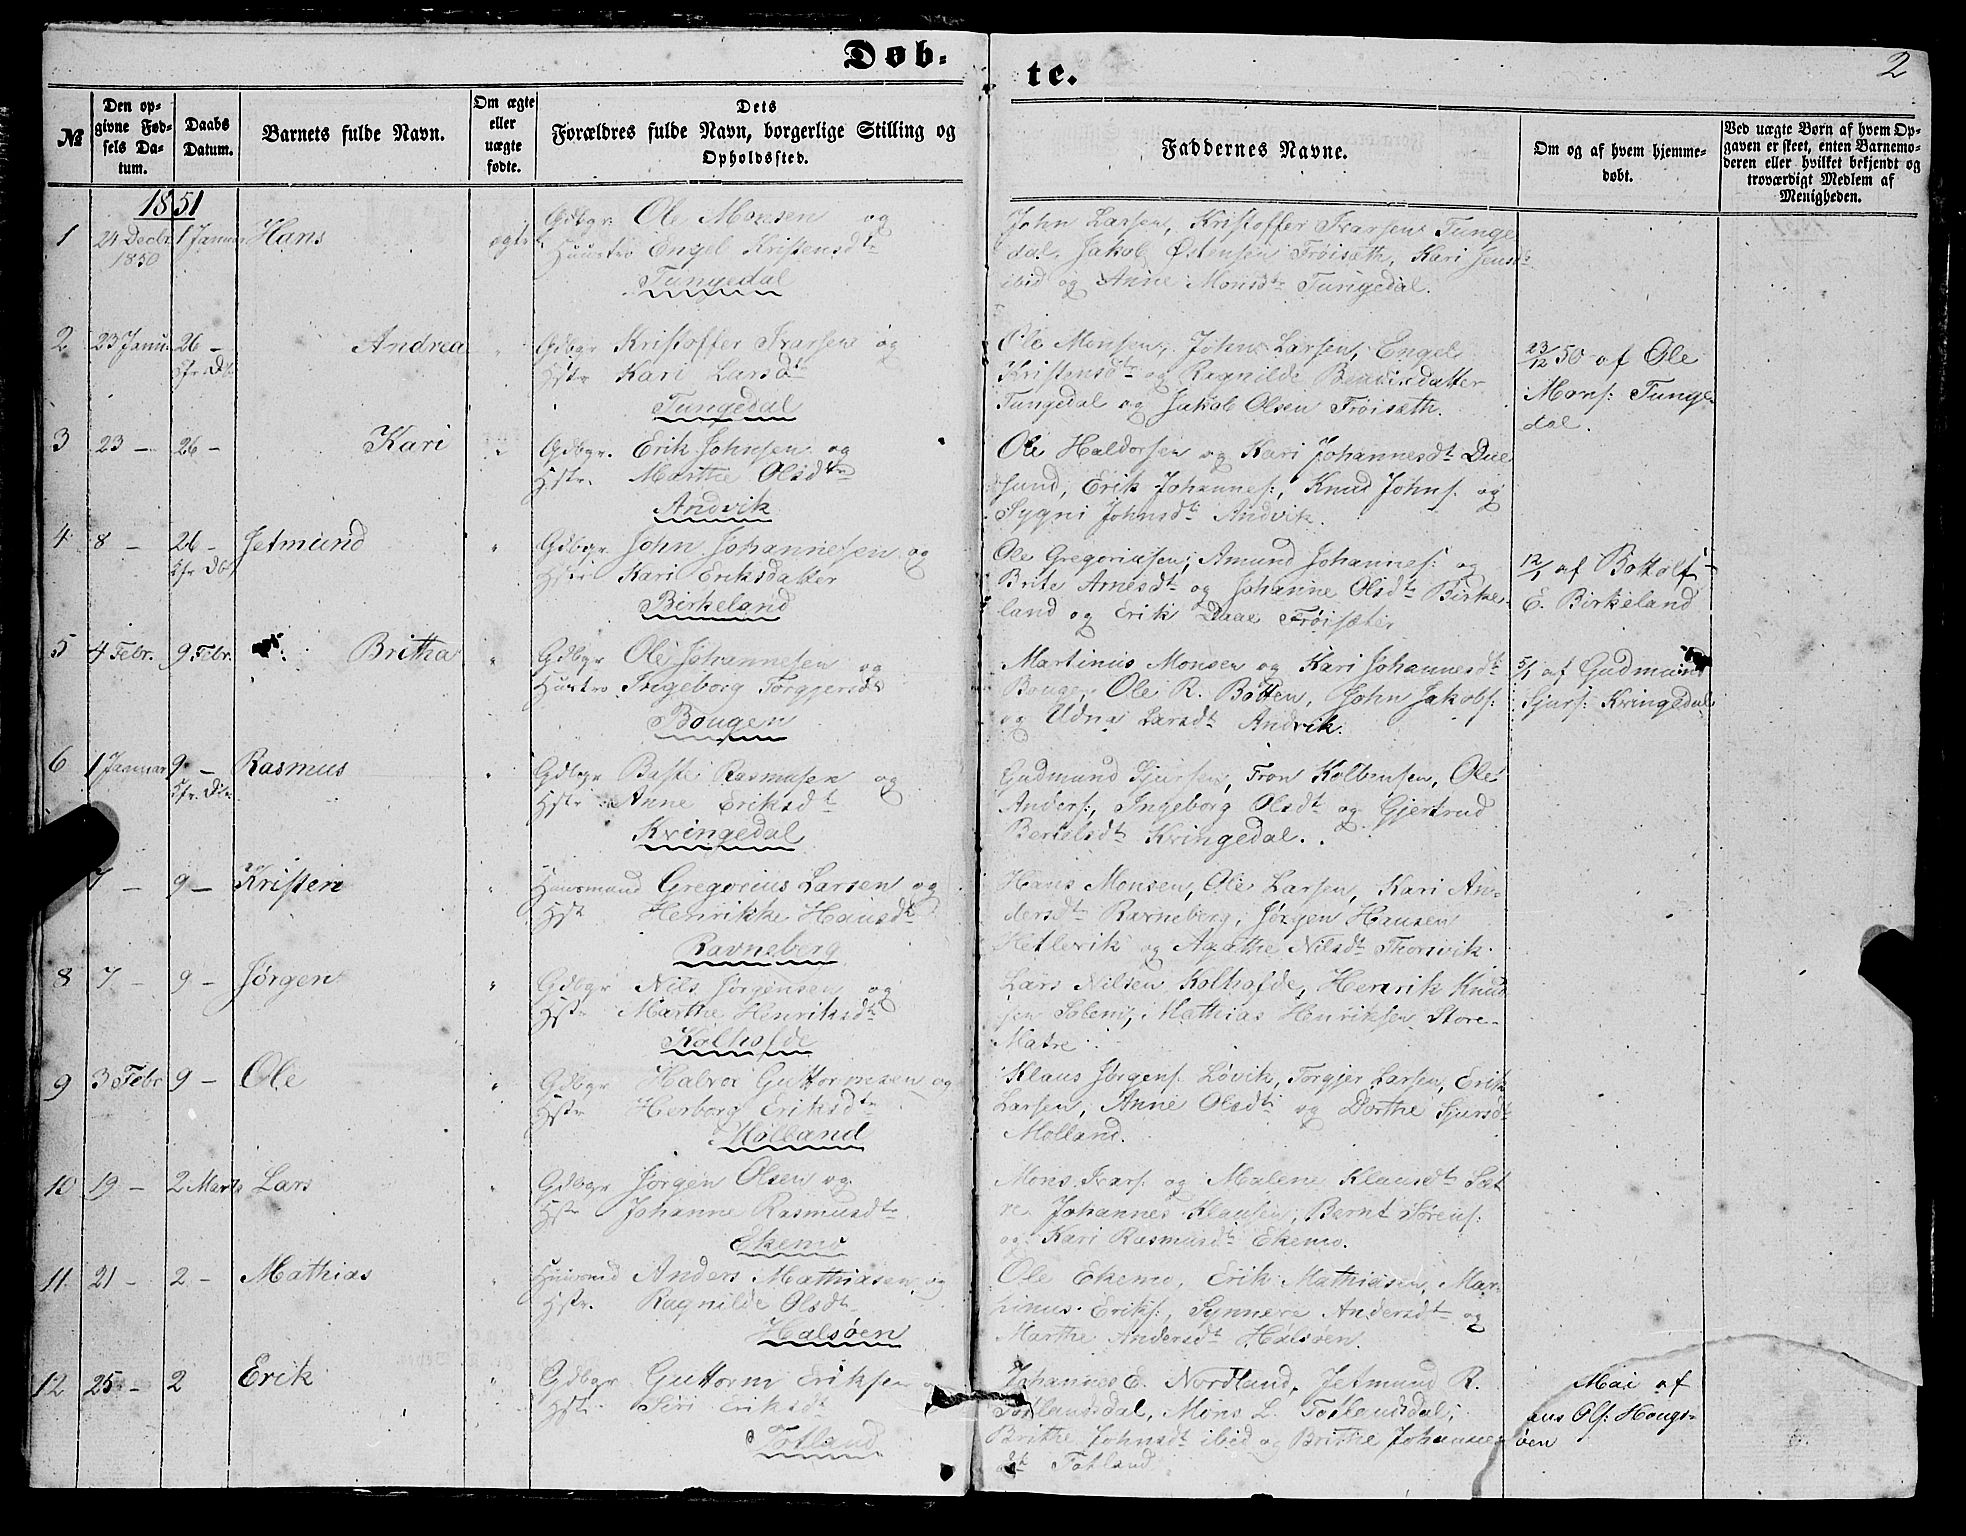 Døb-
te.
2
№
Den op-
givne Fød-
sels Da-
tum.
Daabs
Datum.
Barnets fulde Navn.
Om ægte
eller
uægte
fødte.
Dets
Forældres fulde Navn, borgerlige Stilling og
Opholdssted.
Faddernes Navne.
Om og af hvem hjemme-
døbt.
Ved uægte Børn af hvem Op-
gaven er skeet, enten Barnemo-
deren eller hvilket bekjendt og
troværdigt Medlem af
Menigheden.
1851
1
24 Decbr
1850
1 Januar
Hans
ægte
Gdbgr Ole Monsen og
Huustro Engel Kristensdtr
Tungedal
John Larsen, Kristoffer Ivarsen Tunge
dal, Jakob Østensen Frøisæth, Kari Jensdtr
ibid og Anne Monsdtr Tungedal.
2
23 Janu.
26 -
Andrea
"
Gdbgr Kristoffer Ivarsen og
Hstr Kari Larsdtr
Tungedal
Ole Monsen, John Larsen, Engel
Kristensdtr og Ragnilde Bendixdatter
Tungedal og Jakob Olsen Frøisæth.
23/12 50 af Ole
Mons: Tunge-
dal.
3
23 -
26 -
Kari
"
Gdbgr. Erik Johnsen og
Hstr. Marthe Olsdtr
Andvik
Ole Haldorsen og Kari Johannesdtr Due
sund, Erik Johannes:, Knud Johns: og
Sygni Johnsdtr Andvik.
4
8 -
26 -
Jetmund
"
Gdbgr. John Johannesen og
Hstr Kari Eriksdatter
Birkeland
Ole Gregoriusen, Amund Johannes: og
Brite Arnesdtr og Johanne Olsdtr Birke-
land og Erik Daae Frøisæter
12/1 af Bottolf
E. Birkeland
5
4 Febr.
9 Febr.
Britha
"
Gdbgr Ole Johannesen og
Huustro Ingeborg Torgjersdtr
Bougen
Martinus Monsen og Kari Johannesdtr
Bouge, Ole R. Botten, John Jakobs:
og Udna Larsdtr Andvik.
5/1 af Gudmund
Sjurs: Kvingedal
6
1 Januar
9 -
Rasmus
"
Gdbgr Baste Rasmusen og
Hstr Anne Eriksdtr
Kvingedal
Gudmund Sjursen, Tron Kolbensen, Ole
Anders:, Ingeborg Olsdtr og Gjertrud
Bertelsdtr Kvingedal.
7 -
9 -
Kristen
"
Huusmand Gregorius Larsen og
Hst Henrikke Hansdtr
Ravneberg
Hans Monsen, Ole Larsen, Kari An-
dersdtr Ravneberg, Jørgen Hansen
Hetlevik og Agathe Nilsdtr Thorsvik.
8
7 -
9 -
Jørgen
"
Gdbgr Nils Jørgensen og
Hstr Marthe Henriksdtr
Kolhofde
Lars Nilsen Kolhofde, Henrik Knud
sen Solem, Mathias Henriksen Store-
Matre
9
3 Febr
9 -
Ole
"
Gdbgr Halvor Guttormsen og
Hstr Herborg Eriksdtr
Molland
Klaus Jørgens: Løvik, Torgjer Larsen, Erik
Larsen, Anne Olsdtr og Dorthe Sjursdtr
Molland.
10
19 -
2 Marts
Lars
"
Gdbgr Jørgen Olsen og
Hstr Johanne Rasmusdtr
Ekemo
Mons Ivars: og Malene Klausdtr Sæt
re, Johannes Klausen, Bernt Sørens:
og Kari Rasmusdtr Ekemo.
11
21 -
2 -
Mathias
"
Huusmd Anders Mathiasen og
Hstr. Ragnilde Olsdtr
Halsøen
Ole Ekemo, Erik Mathiasen, Mar-
tinus Eriks:, Synneve Andersdtr og
Marthe Andersdtr Halsøen.
12
25 -
2
Erik
"
Gdbgr Guttorm Eriksen
Hstr Siri Eriksdtr
Totland
Johannes E. Nordland, Jetmund R.
Totlandsdal, Mons L. Totlandsdal,
Brithe Johnsdtr ibid og Brithe Johannes-
dtr Totland
Mai af
Ols: Hougs-
øen